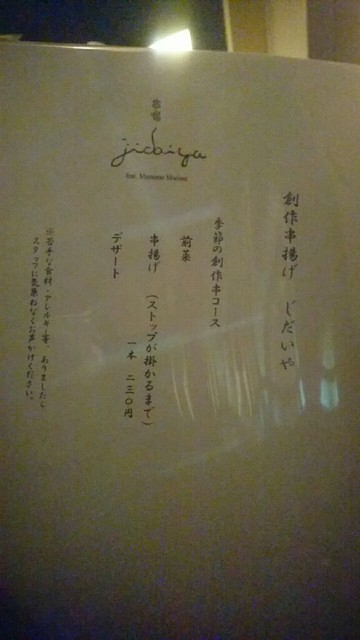 串揚
jidaiya
創作串揚げ じだいや
季節の創作串コース
前菜
串揚げ (ストップが掛かるまで)
一本 二三〇円
デザート
※苦手な食材・アレルギー等、ありましたら
スタッフに気兼ねなくお声がけください。